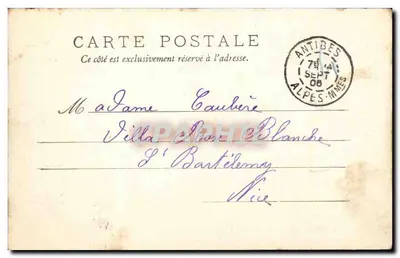 CARTE POSTALE
Ce côté est exclusivement réservé à l'adresse.
ANTIBES
SEPT
06
ALPES-MMES
Madame
Villa Rose Blanche
St Bartélemy
Nice